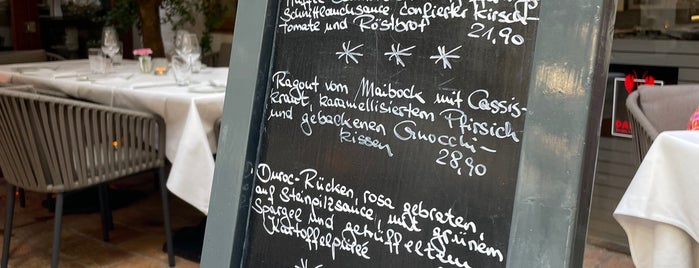 Schnittlauchsauce, confierter Kirsch-
tomate und Röstbrot
21,90
Ragout vom Maibock mit Cassis-
kraut, karamellisiertem Pfirsich
und gebackenen Gnocchi-
kissen
28,90
Duroc-Rücken, rosa gebraten,
auf Steinpilzsauce, mit grünem
Spargel und getrüffeltem
Kartoffelpüree